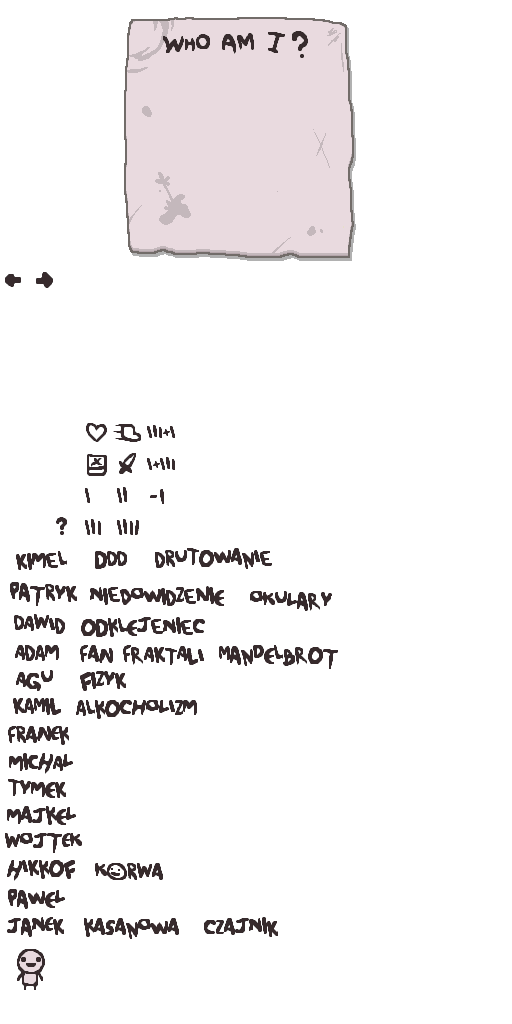 WHO AM I?
III+I
I+III
I II -I
? III IIII
KIMEL DDD DRUTOWANIE
PATRYK NIEDOWIDZENIE OKULARY
DAWID ODKLEJENIEC
ADAM FAN FRAKTALI MANDELBROT
AGU FIZYK
KAMIL ALKOCHOLIZM
FRANEK
MICHAL
TYMEK
MAJKEL
WOJTEK
HIKKOF K☺RWA
PAWEL
JANEK KASANOWA CZAJNIK